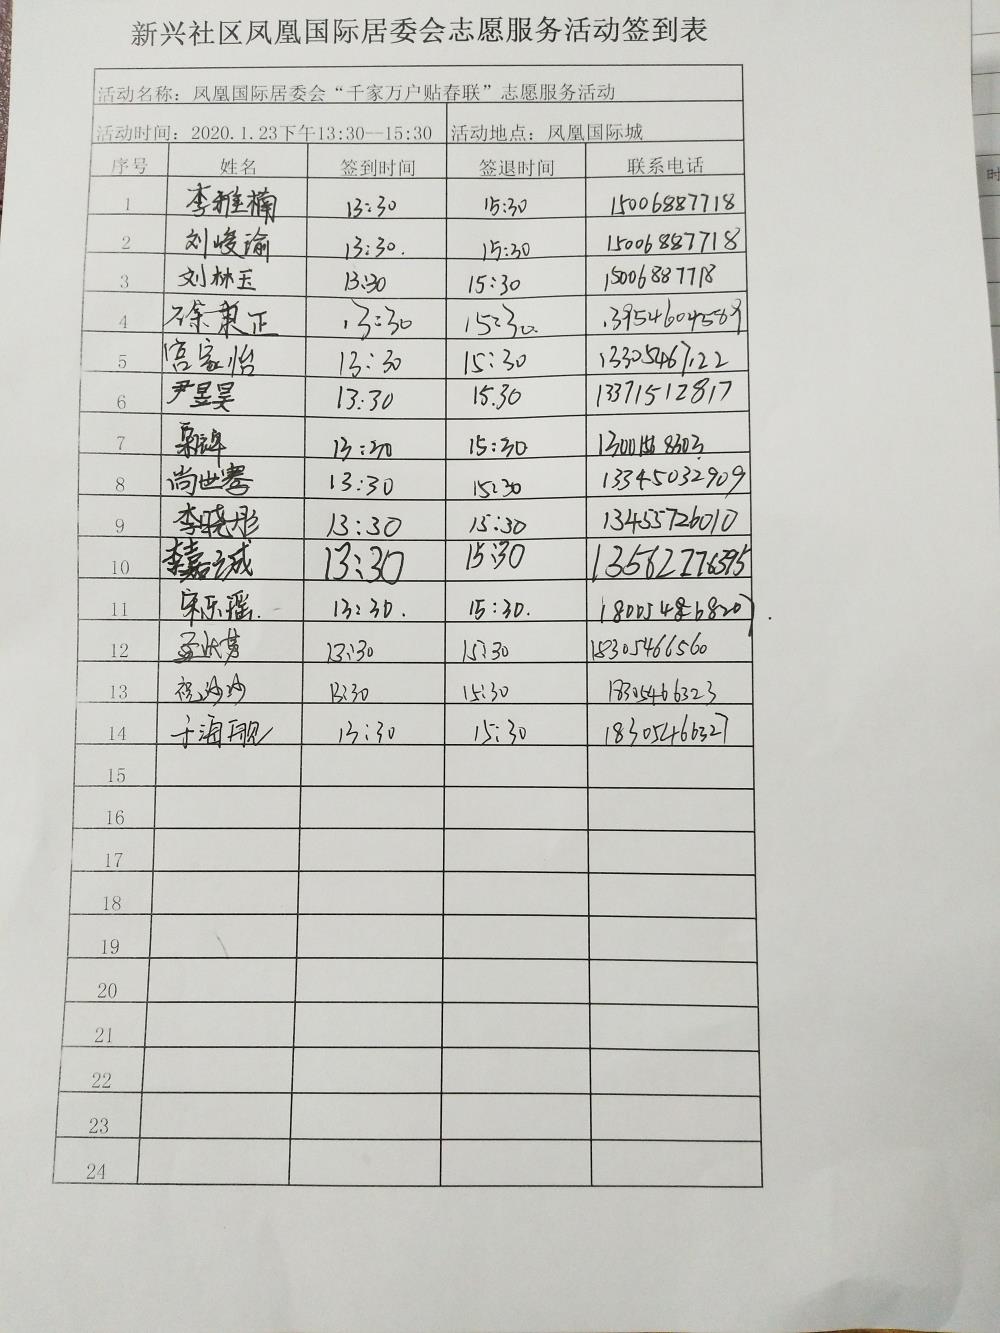 新兴社区凤凰国际居委会志愿服务活动签到表
活动名称：凤凰国际居委会“千家万户贴春联”志愿服务活动
活动时间：2020.1.23下午13:30--15:30 活动地点：凤凰国际城
序号 姓名 签到时间 签退时间 联系电话
1 李雅楠 13:30 15:30 15006887718
2 刘峻瑜 13:30. 15:30 15006887718
3 刘林玉 13:30 15:30 15006887718
4 徐秉正 13:30 15:30. 13954604569
5 宫家怡 13:30 15:30 13305467122
6 尹昱昊 13:30 15.30 13371512817
7 13:30 15:30
8 尚世骞 13:30 15:30 13345032909
9 李晓彤 13:30 15:30 13455726010
10 李嘉诚 13:30 15:30 13562276395
11 宋乐瑶. 13:30. 15:30. 18005486820
12 13:30 15:30 18305466560
13 祝沙沙 13:30 15:30 18305466323
14 于海 13:30 15:30 18305466327
15
16
17
18
19
20
21
22
23
24
时